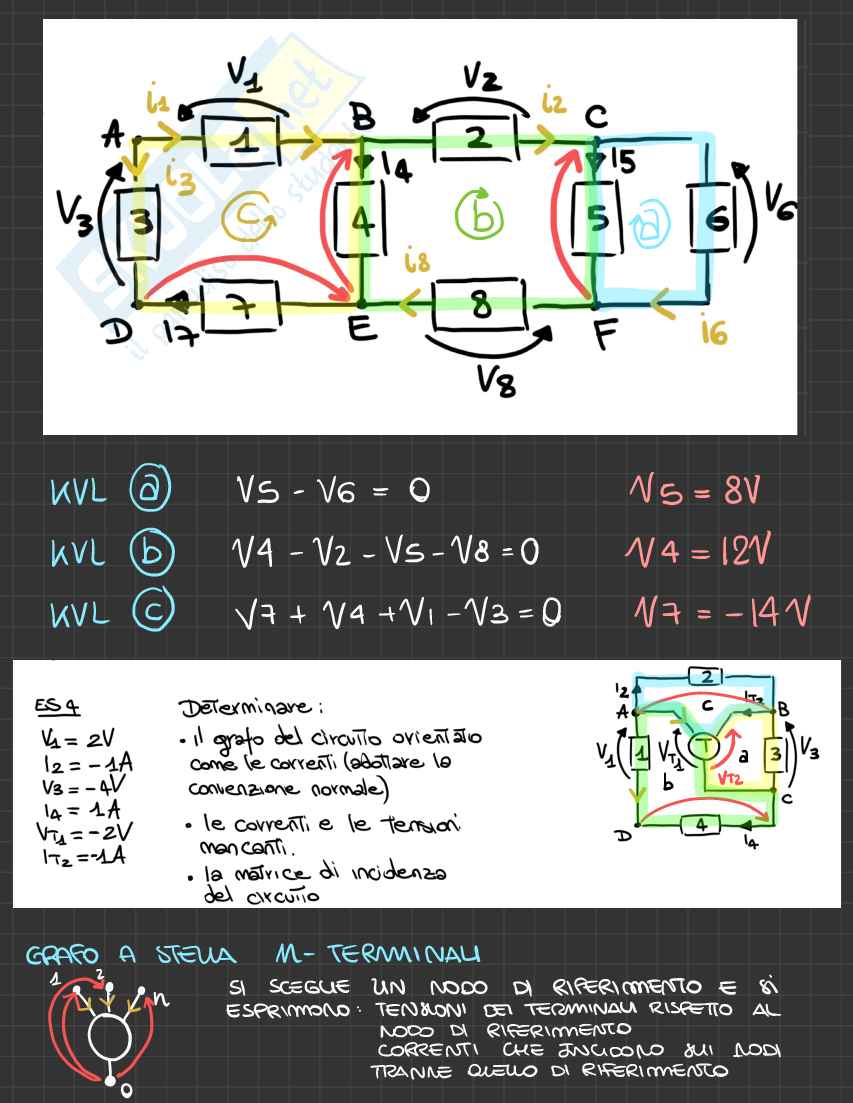 V1 V2
i1 B i2 C
A 1 2
i3 I4 I5
V3 3 c 4 b 5 a 6 V6
i8
7 8
D I7 E F i6
V8
KVL a V5 - V6 = 0 V5 = 8V
KVL b V4 - V2 - V5 - V8 = 0 V4 = 12V
KVL c V7 + V4 + V1 - V3 = 0 V7 = -14V
ES 4
V1 = 2V
I2 = -1A
V3 = -4V
I4 = 1A
VT1 = -2V
IT2 = -1A
Determinare:
• il grafo del circuito orientato
come le correnti (adottare la
convenzione normale)
• le correnti e le tensioni
mancanti.
• la matrice di incidenza
del circuito
2
I2 c IT2
A B
V1 1 VT1 T a 3 V3
b VT2
C
D 4 I4
GRAFO A STELLA M-TERMINALI
1 2 n
0
SI SCEGLIE UN NODO DI RIFERIMENTO E SI
ESPRIMONO: TENSIONI DEI TERMINALI RISPETTO AL
NODO DI RIFERIMENTO
CORRENTI CHE INCIDONO SUI NODI
TRANNE QUELLO DI RIFERIMENTO